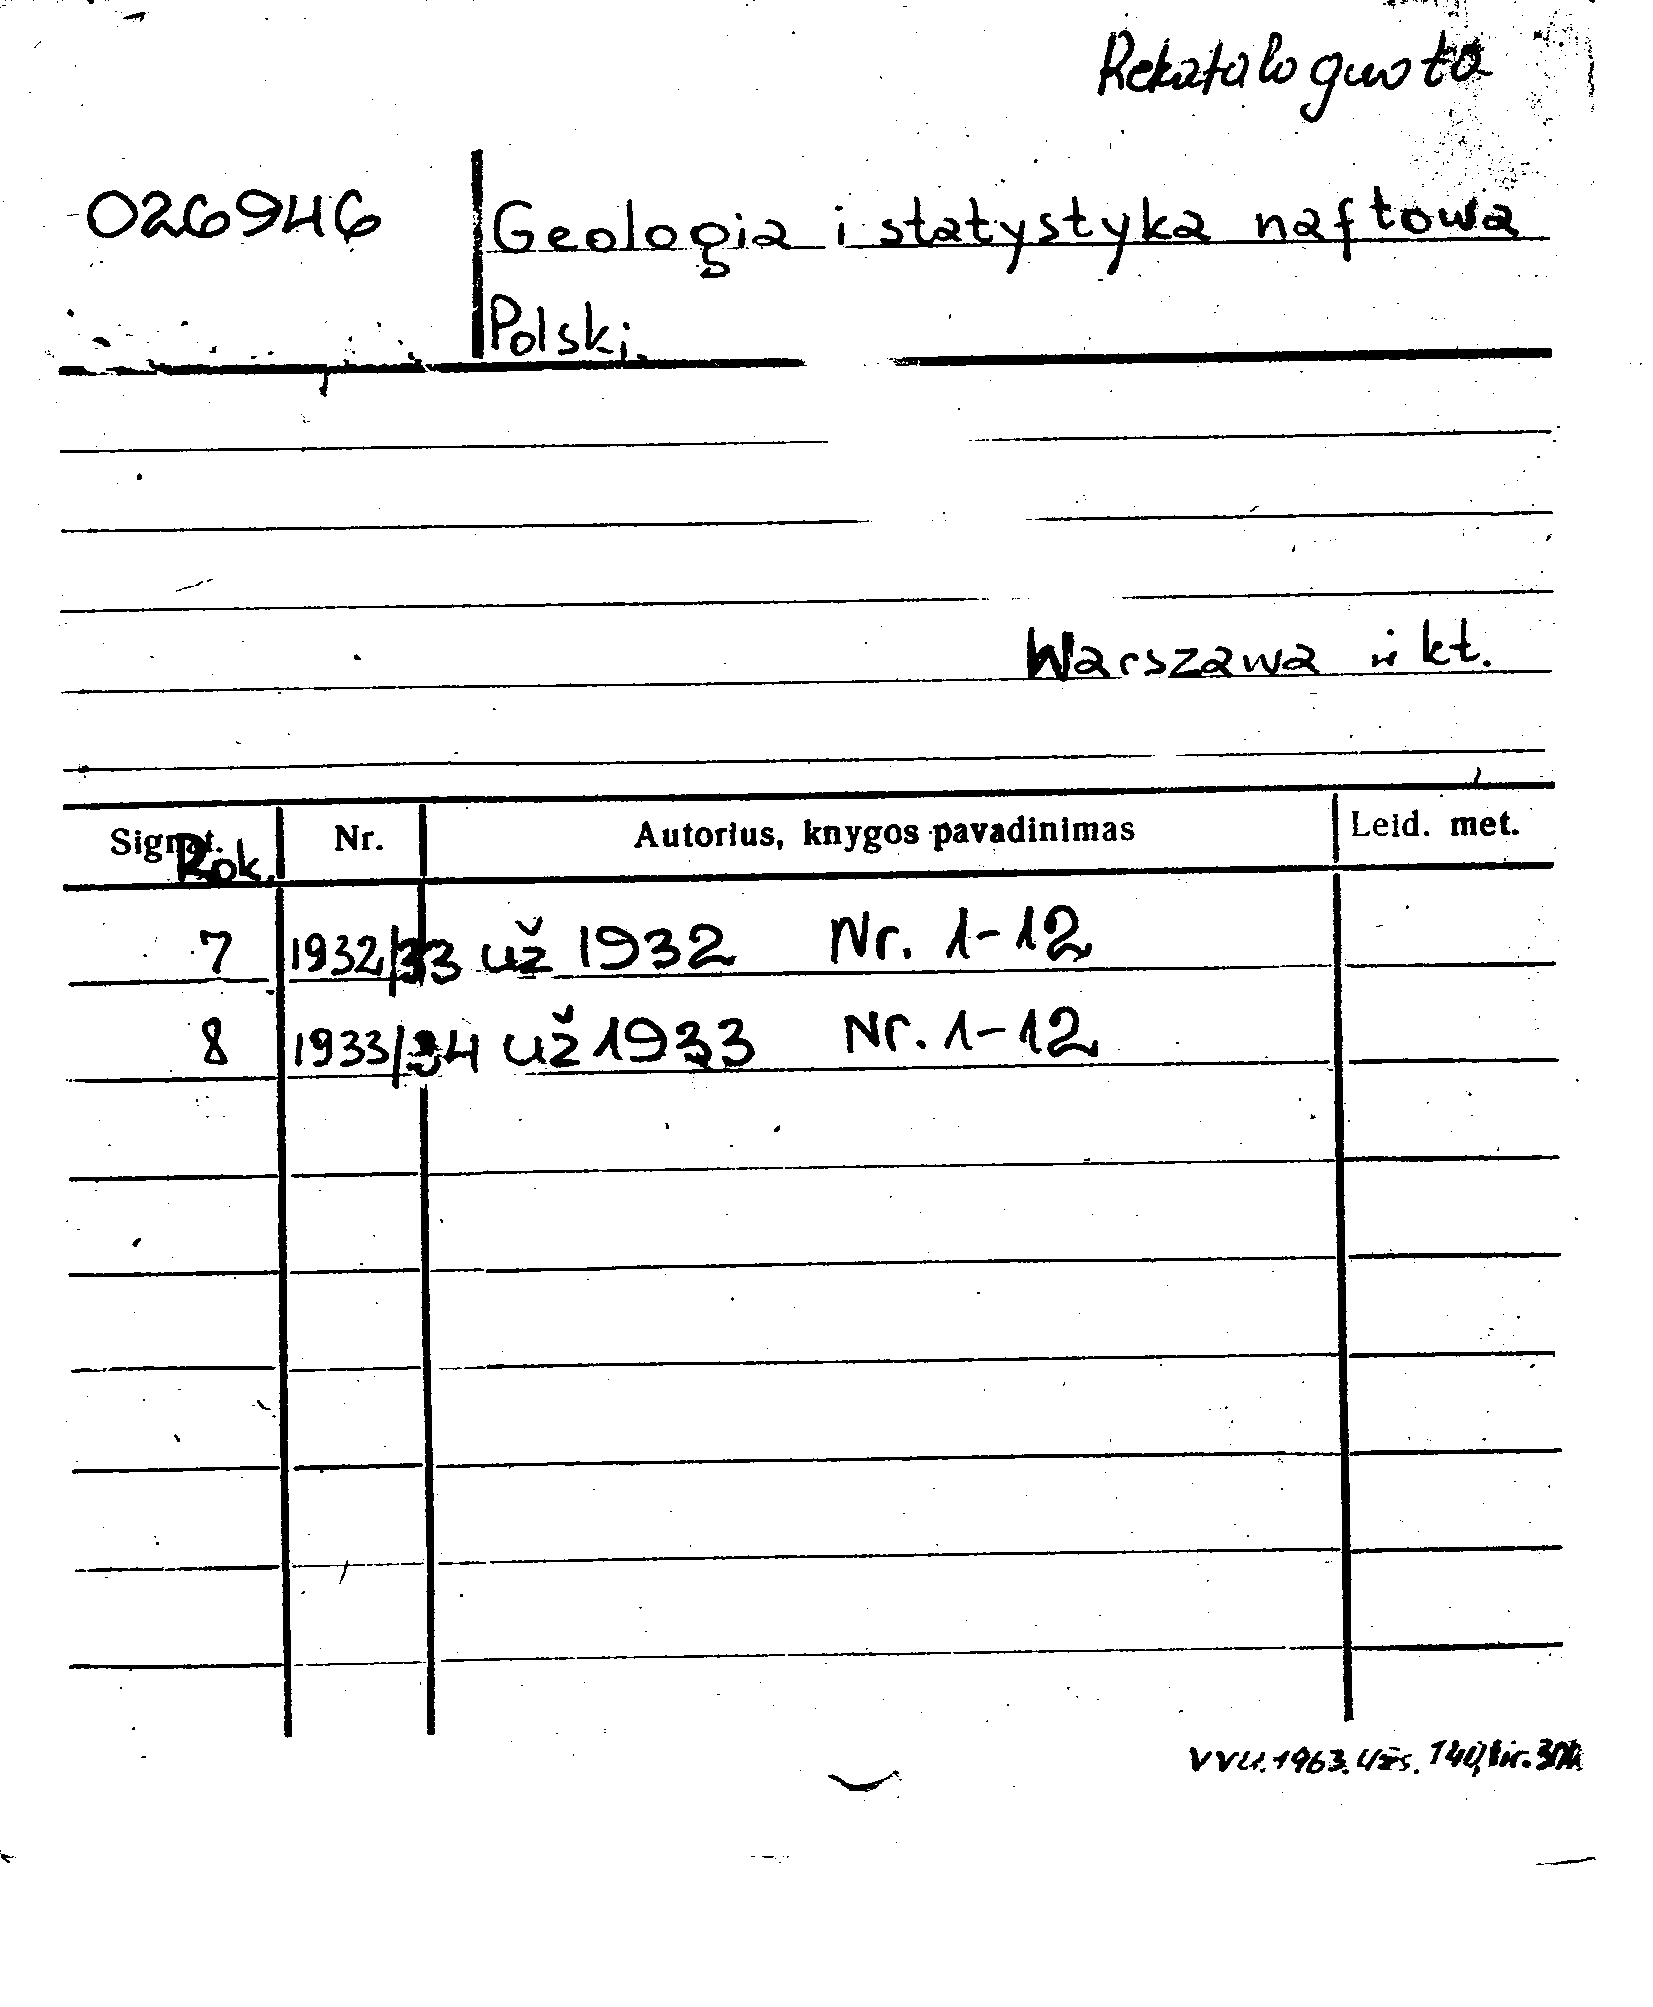 Rekataloguota
026946 Geologia i statystyka naftowa
Polski.
Warszawa ir kt.
Signat. Nr. Autorius, knygos pavadinimas Leid. met.
Rok.
7 1932/33 už 1932 Nr. 1-12
8 1933/34 už 1933 Nr. 1-12
VVU. 1963. Užs. 140, tir.